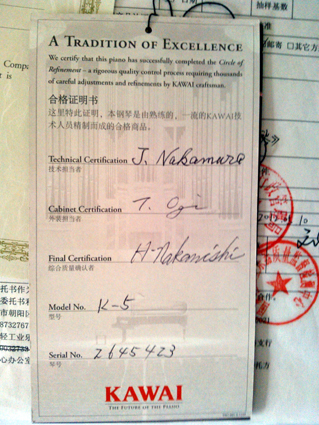 A TRADITION OF EXCELLENCE
We certify that this piano has successfully completed the Circle of
Refinement – a rigorous quality control process requiring thousands
of careful adjustments and refinements by KAWAI craftsman.
合格证明书
这里特此证明，本钢琴是由熟练的，一流的KAWAI技
术人员精制而成的合格商品。
Technical Certification J. Nakamura
技术担当者
Cabinet Certification T. Ogi
外装担当者
Final Certification H-Nakanishi
综合质量确认者
Model No. K-5
型号
Serial No. 2645423
琴号
KAWAI
THE FUTURE OF THE PIANO
抽样基数
托书作
委托书
市朝阳
8732767
轻工业
心办公室